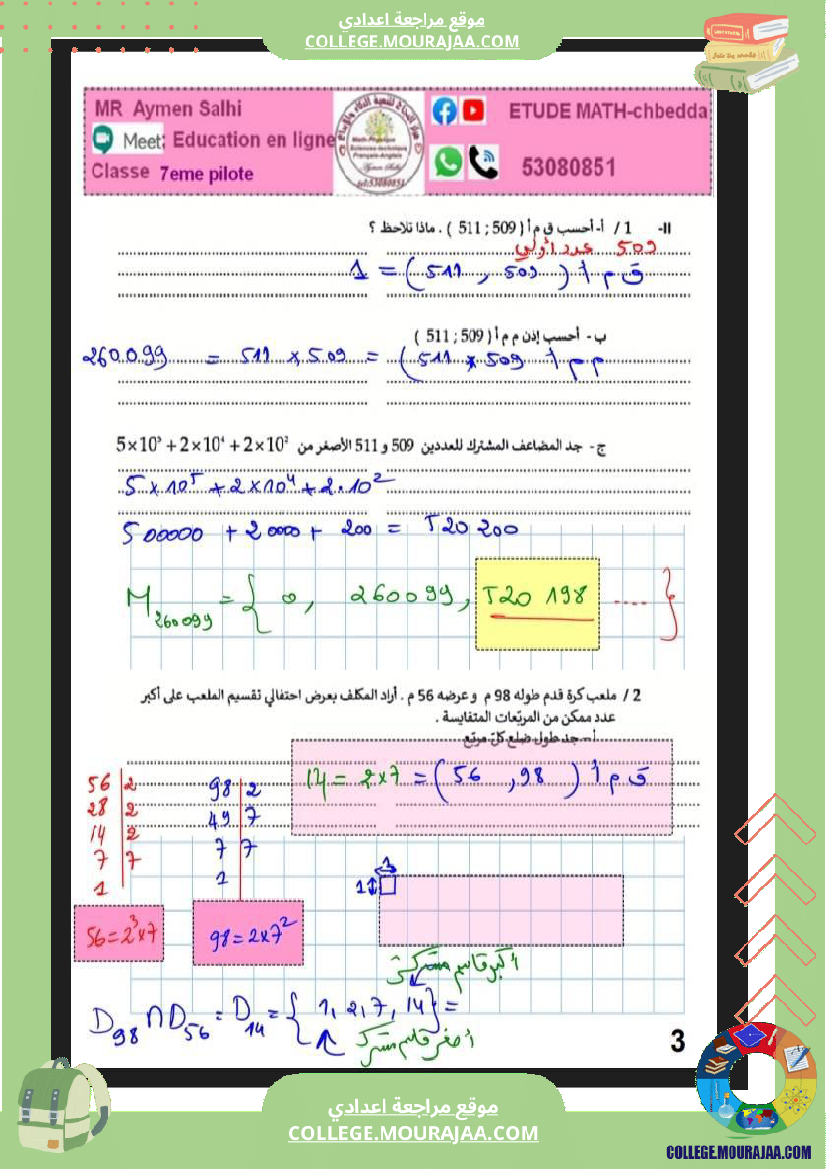 موقع مراجعة اعدادي
COLLEGE.MOURAJAA.COM
MR Aymen Salhi
Meet: Education en ligne
Classe 7eme pilote
ETUDE MATH-chbedda
53080851
II- 1 / أ- أحسب ق م أ ( 509 ; 511 ) . ماذا تلاحظ ؟
509 عدد أولي
ق م أ ( 509 , 511 ) = 1
ب - أحسب إذن م م أ ( 509 ; 511 )
م م أ ( 509 × 511 ) = 509 × 511 = 260099
ج - جد المضاعف المشترك للعددين 509 و 511 الأصغر من 5×10⁵ + 2×10⁴ + 2×10²
5 × 10⁵ + 2 × 10⁴ + 2 . 10²
500000 + 20000 + 200 = 520 200
M₂₆₀₀₉₉ = { 0, 260099, 520 198 .... }
2 / ملعب كرة قدم طوله 98 م و عرضه 56 م . أراد المكلف بعرض احتفالي تقسيم الملعب على أكبر
عدد ممكن من المربّعات المتقايسة .
أ - جد طول ضلع كلّ مربّع
ق م أ ( 98 , 56 ) = 2×7 = 14
56 | 2
28 | 2
14 | 2
7 | 7
1
98 | 2
49 | 7
7 | 7
1
1
1
56 = 2³×7
98 = 2×7²
أكبر قاسم مشترك
D₉₈ ∩ D₅₆ = D₁₄ = { 1, 2, 7, 14 } =
أصغر قاسم مشترك
3
موقع مراجعة اعدادي
COLLEGE.MOURAJAA.COM
COLLEGE.MOURAJAA.COM